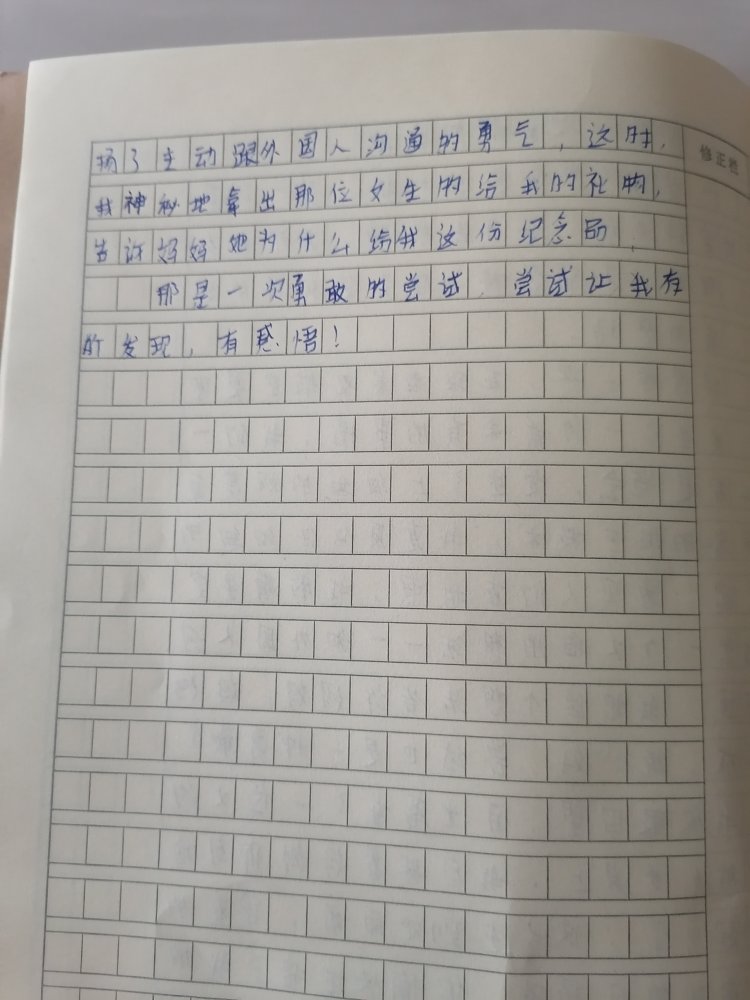 扬了主动跟外国人沟通的勇气，这时，
我神秘地拿出那位女生的给我的礼物，
告诉妈妈她为什么给我这份纪念品，
那是一次勇敢的尝试，尝试让我有
所发现，有感悟！
修正栏